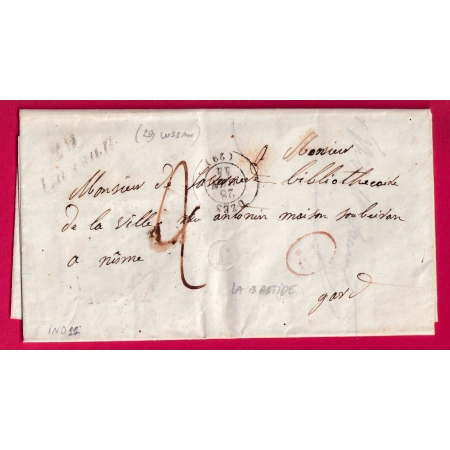 (29) LUSSAN
29
(29)
28
UZÈS
Monsieur
Monsieur de bibliothecaire
de la ville rue antonin maison soubeiran
a nîme
2
LA BASTIDE
gard
IND 11